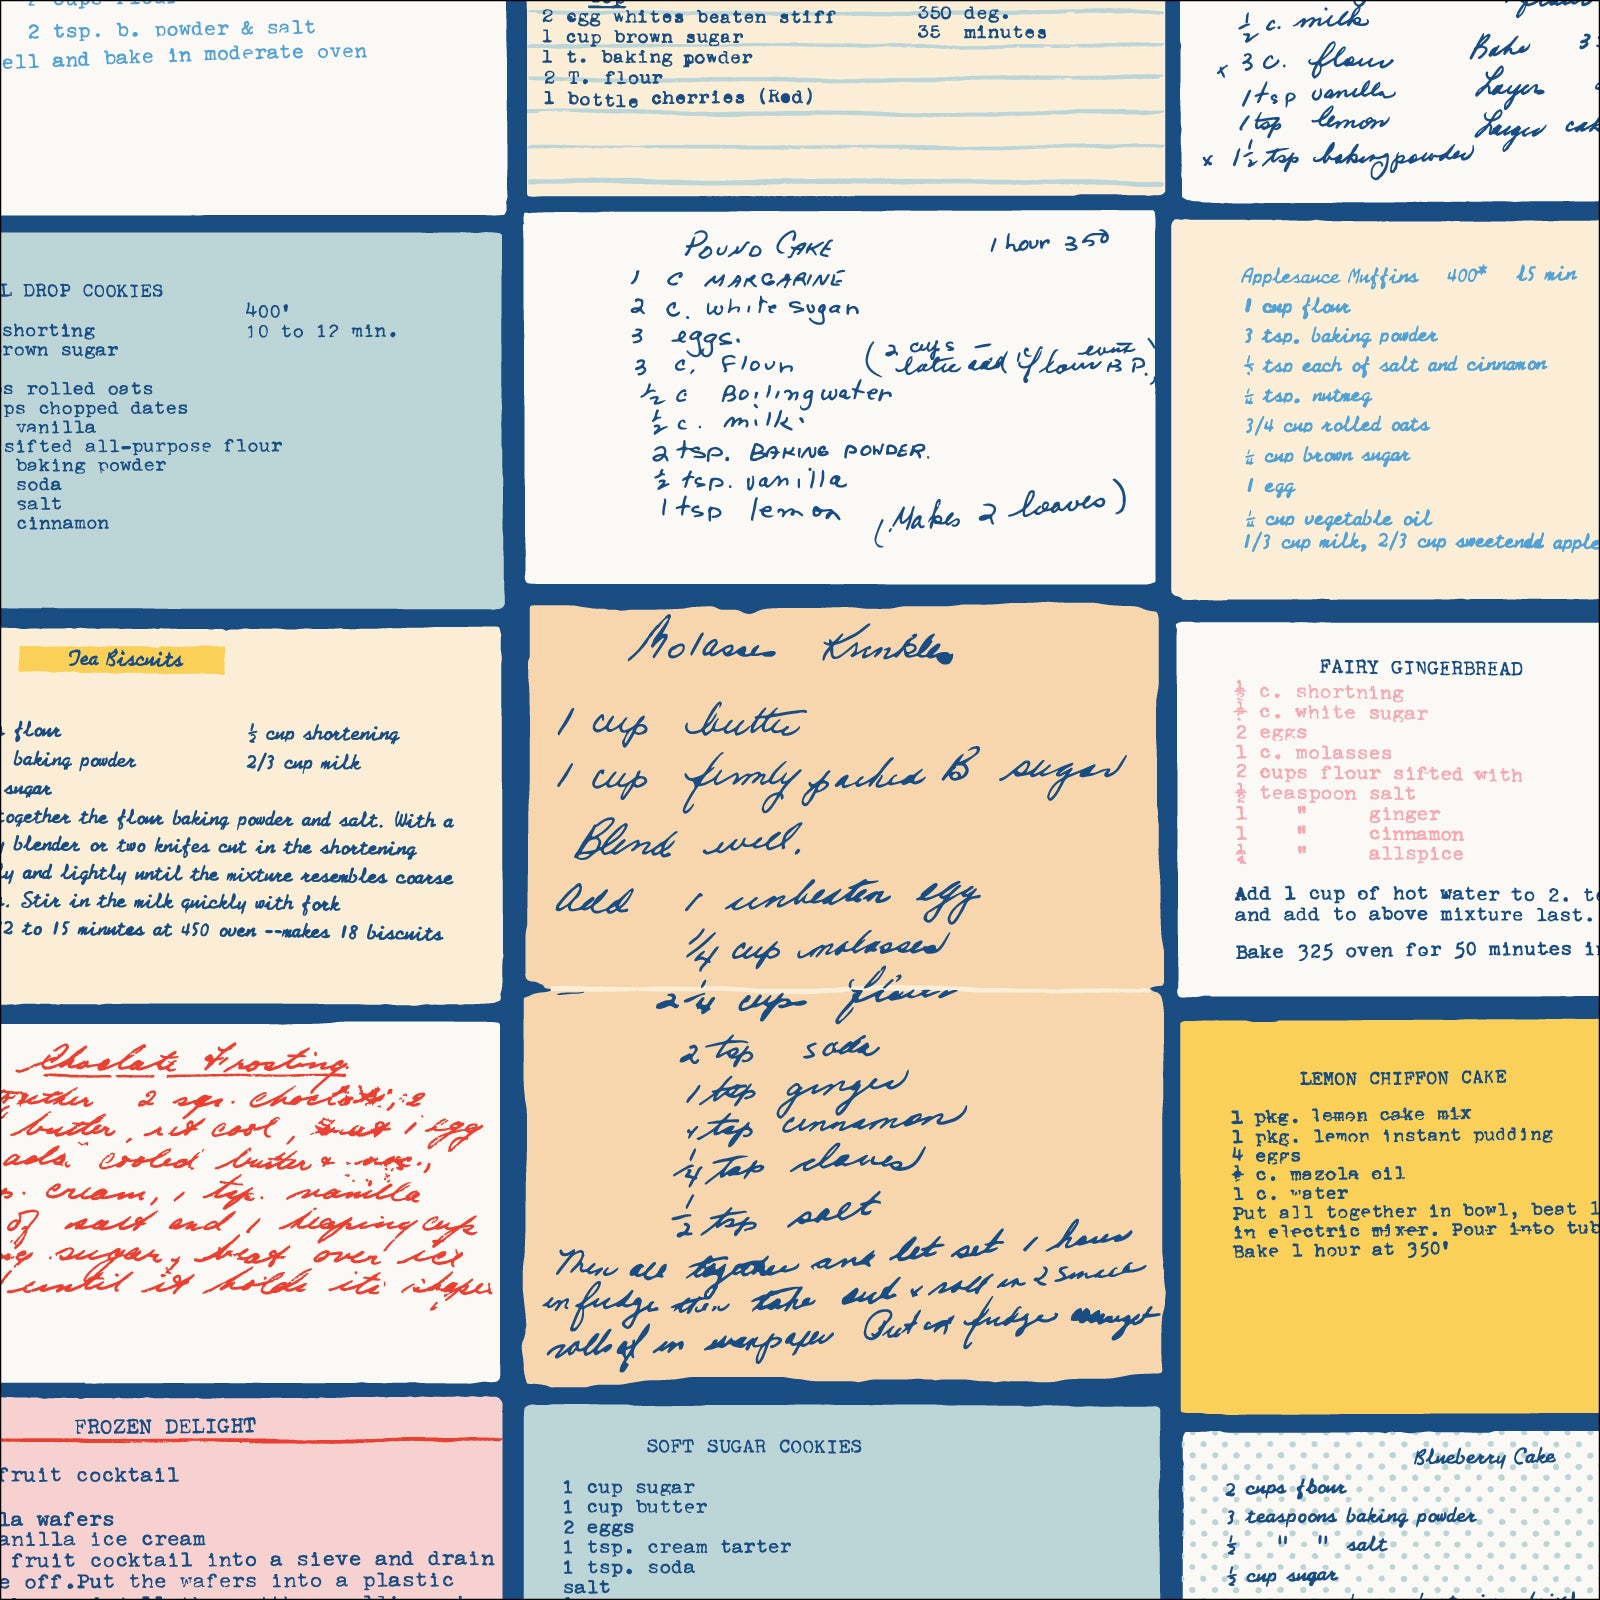 2 tsp. b. powder & salt
ell and bake in moderate oven
2 egg whites beaten stiff 350 deg.
1 cup brown sugar 35 minutes
1 t. baking powder
2 T. flour
1 bottle cherries (Red)
½ c. milk
x 3 c. flour Bake 3
1 tsp vanilla Layer
1 tsp lemon Larger cak
x 1½ tsp baking powder
L DROP COOKIES
400'
shorting 10 to 12 min.
rown sugar
s rolled oats
ps chopped dates
vanilla
sifted all-purpose flour
baking powder
soda
salt
cinnamon
POUND CAKE 1 hour 350
1 C MARGARINE
2 c. white sugar
3 eggs.
3 c. Flour (2 cups
later add 1 c flour B P.)
½ c Boiling water
½ c. milk.
2 tsp. BAKING POWDER.
½ tsp. vanilla
1 tsp lemon
(Makes 2 loaves)
Applesauce Muffins 400* 15 min
1 cup flour
3 tsp. baking powder
½ tsp each of salt and cinnamon
¼ tsp. nutmeg
3/4 cup rolled oats
¼ cup brown sugar
1 egg
¼ cup vegetable oil
1/3 cup milk, 2/3 cup sweetendd apple
Tea Biscuits
flour ½ cup shortening
baking powder 2/3 cup milk
sugar
together the flour baking powder and salt. With a
blender or two knifes cut in the shortening
ly and lightly until the mixture resembles coarse
. Stir in the milk quickly with fork
2 to 15 minutes at 450 oven --makes 18 biscuits
Molasses Krinkles
1 cup butter
1 cup firmly packed B sugar
Blend well.
Add 1 unbeaten egg
1/4 cup molasses
2 1/4 cups flour
2 tsp soda
1 tsp ginger
1 tsp cinnamon
¼ tsp cloves
½ tsp salt
Then all together and let set 1 hour
in fudge then take out & roll in 2 small
rolls of in waxpaper Put in fudge
FAIRY GINGERBREAD
½ c. shortning
½ c. white sugar
2 eggs
1 c. molasses
2 cups flour sifted with
½ teaspoon salt
1 " ginger
1 " cinnamon
¼ " allspice
Add 1 cup of hot water to 2. te
and add to above mixture last.
Bake 325 oven for 50 minutes in
Choclate Frosting
2 sqr. choclate, 2
butter, let cool, 1 egg
add cooled butter &
s. cream, 1 tsp. vanilla
of salt and 1 heaping cup
ing sugar, beat over ice
until it holds its shape
LEMON CHIFFON CAKE
1 pkg. lemon cake mix
1 pkg. lemon instant pudding
4 eggs
½ c. mazola oil
1 c. water
Put all together in bowl, beat 1
in electric mixer. Pour into tub
Bake 1 hour at 350'
FROZEN DELIGHT
fruit cocktail
la wafers
anilla ice cream
fruit cocktail into a sieve and drain
e off.Put the wafers into a plastic
SOFT SUGAR COOKIES
1 cup sugar
1 cup butter
2 eggs
1 tsp. cream tarter
1 tsp. soda
salt
Blueberry Cake
2 cups flour
3 teaspoons baking powder
½ " " salt
½ cup sugar